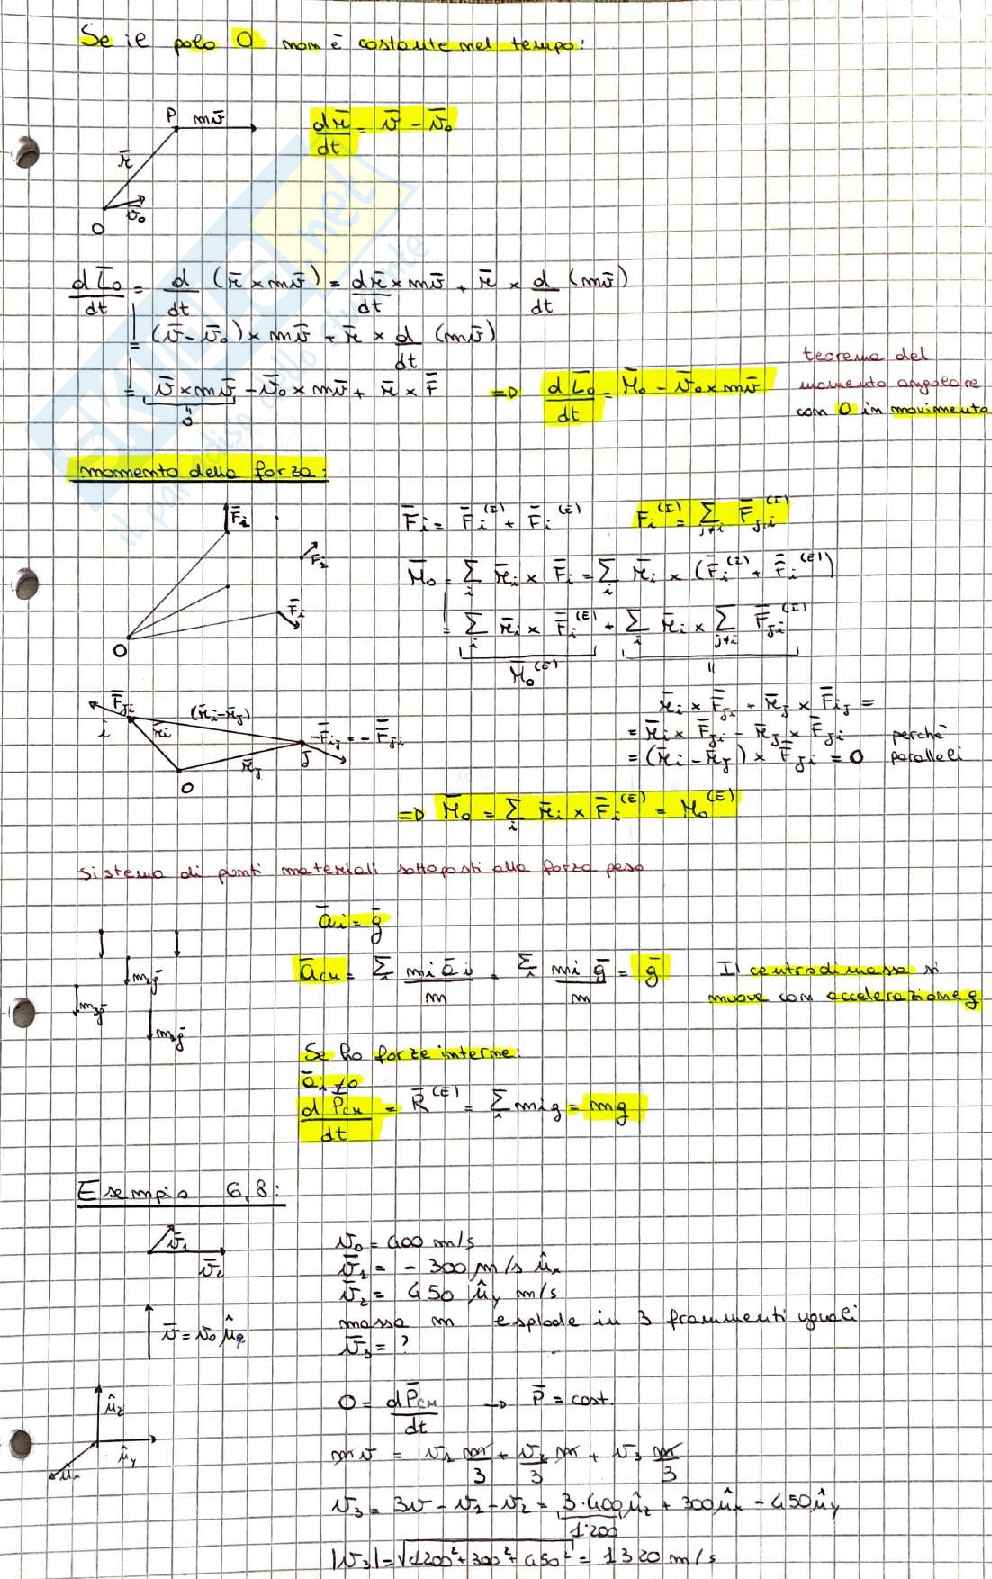 Se il polo O non è costante nel tempo:
P mv̄
r̄
v̄₀
O
dr̄/dt = v̄ - v̄₀
dL̄₀/dt = d/dt (r̄ × mv̄) = dr̄/dt × mv̄ + r̄ × d/dt (mv̄)
= (v̄ - v̄₀) × mv̄ + r̄ × d/dt (mv̄)
= v̄ × mv̄ - v̄₀ × mv̄ + r̄ × F̄ ⇒ dL̄₀/dt = M̄₀ - v̄₀ × mv̄
0
teorema del
momento angolare
con O in movimento
momento della forza:
F̄i = F̄i^(I) + F̄i^(E) Fi^(I) = Σ j≠i F̄ji^(I)
M̄₀ = Σi r̄i × F̄i = Σi r̄i × (F̄i^(I) + F̄i^(E))
= Σi r̄i × F̄i^(E) + Σi r̄i × Σ j≠i F̄ji^(I)
M̄₀^(E)
F̄i
F̄2
F̄i
O
F̄ji
i
r̄i
(r̄i - r̄j)
F̄ij = - F̄ji
r̄j
J
O
r̄i × F̄ji + r̄j × F̄ij =
= r̄i × F̄ji - r̄j × F̄ji perchè
= (r̄i - r̄j) × F̄ji = 0 paralleli
⇒ M̄₀ = Σi r̄i × F̄i^(E) = M₀^(E)
Sistema di punti materiali sottoposti alla forza peso
āi = ḡ
āCM = Σi mi āi / m = Σi mi ḡ / m = ḡ Il centro di massa si
muove con accelerazione g
Se ho forze interne:
āi ≠ 0
dP̄CM/dt = R̄^(E) = Σi mi g = mg
Esempio 6,8:
v̄₁
v̄₂
v̄ = v₀ û_z
v₀ = 400 m/s
v̄₁ = - 300 m/s ûx
v̄₂ = 450 ûy m/s
massa m esplode in 3 frammenti uguali
v̄₃ = ?
ûz
ûy
ûx
0 = dP̄CM/dt → P̄ = cost.
mv = v₁ m/3 + v₂/3 m + v₃ m/3
v₃ = 3v - v₁ - v₂ = 3·400 ûz + 300 ûx - 450 ûy
1200
|v₃| = √(1200² + 300² + 450²) = 1320 m/s